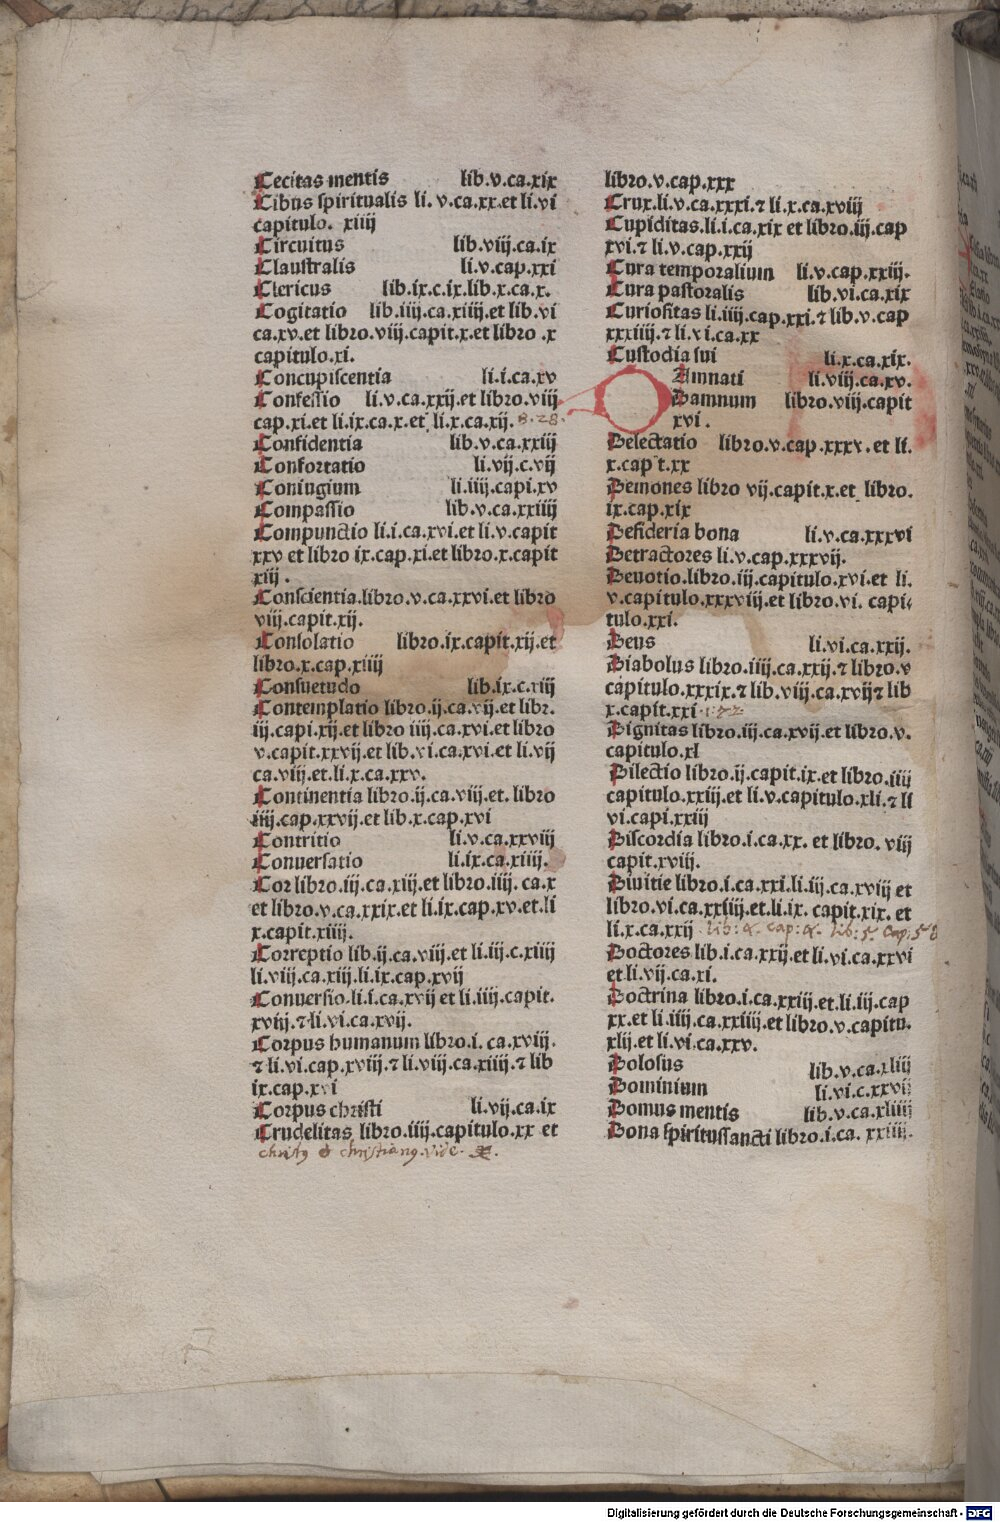 Cecitas mentis lib.v.ca.xix
Cibus spiritualis li. v.ca.xx.et li.vi
capitulo. xiiij
Circuitus lib.viij.ca.ix
Claustralis li.v.cap.xxi
Clericus lib.ix.c.ix.lib.x.ca.x.
Cogitatio lib.iiij.ca.xiiij.et lib.vi
ca.xv.et libro.viij.capit.x.et libro .x
capitulo.xi.
Concupiscentia li.i.ca.xv
Confessio li.v.ca.xxij.et libro.viij
cap.xi.et li.ix.ca.x.et li.x.ca.xij. 8.28.
Confidentia lib.v.ca.xxiij
Confortatio li.vij.c.vij
Coniugium li.iiij.capi.xv
Compassio lib.v.ca.xxiiij
Compunctio li.i.ca.xvi.et li.v.capit
xxv et libro ix.cap.xi.et libro.x.capit
xiij .
Conscientia.libro.v.ca.xxvi.et libro
viij.capit.xij.
Consolatio libro.ix.capit.xij.et
libro.x.cap.xiiij
Consuetudo lib.ix.c.xiij
Contemplatio libro.ij.ca.vij.et libr.
iij.capi.xij.et libro iiij.ca.xvi.et libro
v.capit.xxvij.et lib.vi.ca.xvi.et li.vij
ca.viij.et.li.x.ca.xxv.
Continentia libro.ij.ca.viij.et. libro
iiij.cap.xxvij.et lib.x.cap.xvi
Contritio li.v.ca.xxviij
Conuersatio li.ix.ca.xiiij.
Cor libro.iij.ca.xij.et libro.iiij. ca.x
et libro.v.ca.xxix.et li.ix.cap.xv.et.li
x.capit.xiiij.
Correptio lib.ij.ca.viij.et li.iij.c.xiiij
li.viij.ca.xiij.li.ix.cap.xvij
Conuersio.li.i.ca.xvij et li.iiij.capit.
xviij.⁊ li.vi.ca.xvij.
Corpus humanum libro.i. ca.xviij.
⁊ li.vi.cap.xviij.⁊ li.viij.ca.xiiij.⁊ lib
ix.cap.xvi
Corpus christi li.vij.ca.ix
Crudelitas libro.iiij.capitulo.xx et
vide
libro.v.cap.xxx
Crux.li.v.ca.xxxi.⁊ li.x.ca.xviij
Cupiditas.li.i.ca.xix et libro.iij.cap
xvi.⁊ li.v.cap.xxij
Cura temporalium li.v.cap.xxiij.
Cura pastoralis lib.vi.ca.xix
Curiositas li.iiij.cap.xxi.⁊ lib.v.cap
xxxiiij.⁊ li.vi.ca.xx
Custodia sui li.x.ca.xix.
DAmnati li.viij.ca.xv.
Damnum libro.viij.capit
xvi .
Delectatio libro.v.cap.xxxv.et li.
x.capit.xx
Demones libro vij.capit.x.et libro.
ix.cap.xix
Desideria bona li.v.ca.xxxvi
Detractores li.v.cap.xxxvij.
Deuotio.libro.iij.capitulo.xvi.et li.
v.capitulo.xxxviij.et libro.vi. capi⸗
tulo.xxi.
Deus li.vi.ca.xxij.
Diabolus libro.iiij.ca.xxij.⁊ libro.v
capitulo.xxxix.⁊ lib.viij.ca.xvij⁊ lib
x.capit.xxi
Dignitas libro.iij.ca.xvij.et libro.v.
capitulo.xl
Dilectio libro.ij.capit.ix.et libro.iiij
capitulo.xxiij.et li.v.capitulo.xli.⁊ li
vi.capi.xxiij
Discordia libro.i.ca.xx. et libro. viij
capit.xviij.
Diuitie libro.i.ca.xxi.li.iij.ca.xviij et
libro.vi.ca.xxiiij.et.li.ix. capit.xix. et
li.x.ca.xxij
Doctores lib.i.ca.xxij.et li.vi.ca.xxvi
et li.vij.ca.xi.
Doctrina libro.i.ca.xxiij.et.li.iij.cap
xx.et li.iiij.ca.xxiiij.et libro.v.capitu.
xlij.et li.vi.ca.xxv.
Dolosus lib.v.ca.xliij
Dominium li.vi.c.xxvij
Domus mentis lib.v.ca.xliiij
Dona spiritussancti libro.i.ca. xxiiij.
Digitalisierung gefördert durch die Deutsche Forschungsgemeinschaft - DFG